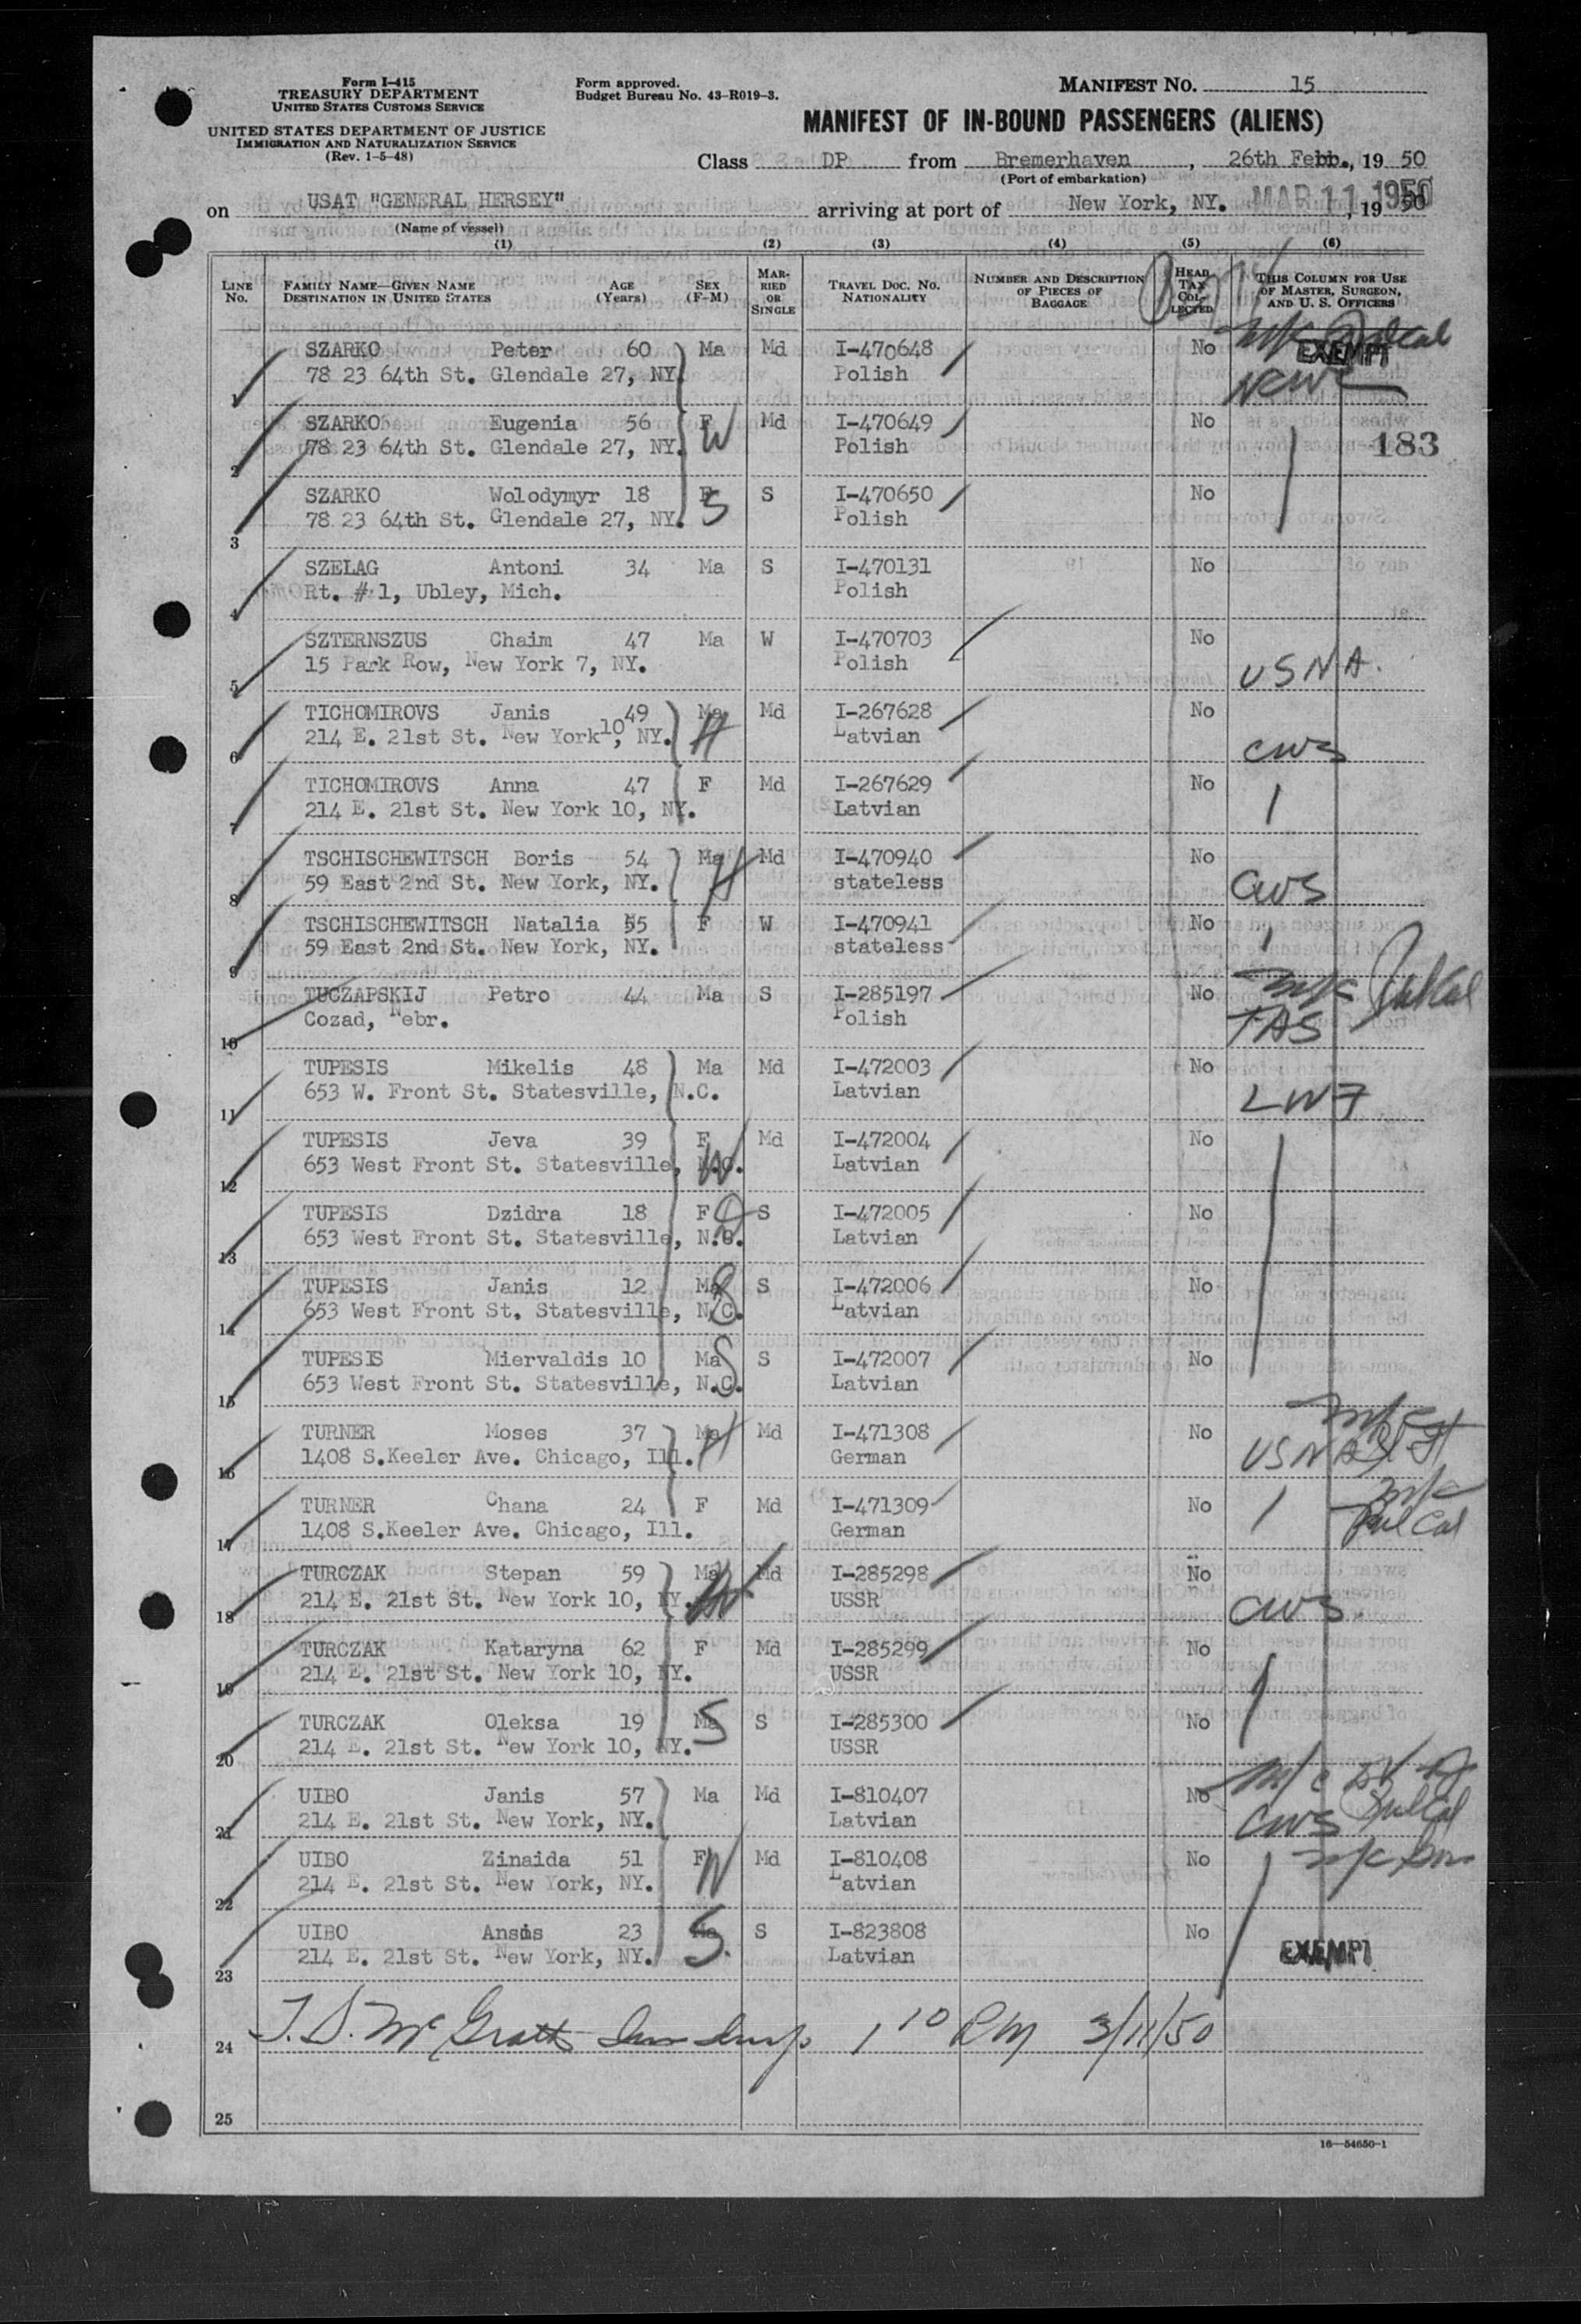 Form I-415
TREASURY DEPARTMENT
UNITED STATES CUSTOMS SERVICE
UNITED STATES DEPARTMENT OF JUSTICE
IMMIGRATION AND NATURALIZATION SERVICE
(Rev. 1-5-48)
Form approved.
Budget Bureau No. 43-R019-3.
MANIFEST NO. 15
MANIFEST OF IN-BOUND PASSENGERS (ALIENS)
Class DP from Bremerhaven, 26th Febb., 19 50
(Port of embarkation)
on USAT "GENERAL HERSEY" arriving at port of New York, NY. MAR 11 1950, 19 50
(Name of vessel)
(1) (2) (3) (4) (5) (6)
LINE No. FAMILY NAME—GIVEN NAME DESTINATION IN UNITED STATES AGE (Years) SEX (F-M) MARRIED OR SINGLE TRAVEL DOC. NO. NATIONALITY NUMBER AND DESCRIPTION OF PIECES OF BAGGAGE HEAD TAX COLLECTED THIS COLUMN FOR USE OF MASTER, SURGEON, AND U. S. OFFICERS
SZARKO Peter 60 Ma Md I-470648 No EXEMPT
1 78 23 64th St. Glendale 27, NY. Polish NCWC
SZARKO Eugenia 56 F W Md I-470649 No
2 78 23 64th St. Glendale 27, NY. Polish 183
SZARKO Wolodymyr 18 F S S I-470650 No
3 78 23 64th St. Glendale 27, NY. Polish
SZELAG Antoni 34 Ma S I-470131 No
4 Rt. # 1, Ubley, Mich. Polish
SZTERNSZUS Chaim 47 Ma W I-470703 No
5 15 Park Row, New York 7, NY. Polish USNA.
TICHOMIROVS Janis 49 Ma H Md I-267628 No
6 214 E. 21st St. New York 10, NY. Latvian CWS
TICHOMIROVS Anna 47 F Md I-267629 No
7 214 E. 21st St. New York 10, NY. Latvian
TSCHISCHEWITSCH Boris 54 Ma H Md I-470940 No
8 59 East 2nd St. New York, NY. stateless CWS
TSCHISCHEWITSCH Natalia 55 F W I-470941 No
9 59 East 2nd St. New York, NY. stateless
TUCZAPSKIJ Petro 44 Ma S I-285197 No m/c
10 Cozad, Nebr. Polish
TUPESIS Mikelis 48 Ma Md I-472003 No
11 653 W. Front St. Statesville, N.C. Latvian LWF
TUPESIS Jeva 39 F W Md I-472004 No
12 653 West Front St. Statesville, N.C. Latvian
TUPESIS Dzidra 18 F D S I-472005 No
13 653 West Front St. Statesville, N.C. Latvian
TUPESIS Janis 12 Ma S S I-472006 No
14 653 West Front St. Statesville, N.C. Latvian
TUPESIS Miervaldis 10 Ma S S I-472007 No
15 653 West Front St. Statesville, N.C. Latvian
TURNER Moses 37 Ma H Md I-471308 No m/c
16 1408 S.Keeler Ave. Chicago, Ill. German USNA
TURNER Chana 24 F Md I-471309 No m/c
17 1408 S.Keeler Ave. Chicago, Ill. German
TURCZAK Stepan 59 Ma Md I-285298 No
18 214 E. 21st St. New York 10, NY. USSR CWS.
TURCZAK Kataryna 62 F Md I-285299 No
19 214 E. 21st St. New York 10, NY. USSR
TURCZAK Oleksa 19 Ma S S I-285300 No
20 214 E. 21st St. New York 10, NY. USSR
UIBO Janis 57 Ma Md I-810407 No m/c
21 214 E. 21st St. New York, NY. Latvian CWS
UIBO Zinaida 51 F W Md I-810408 No m/c
22 214 E. 21st St. New York, NY. Latvian
UIBO Ansis 23 Ma S. S I-823808 No
23 214 E. 21st St. New York, NY. Latvian EXEMPT
24 1 10 PM 3/11/50
25
16—54650-1